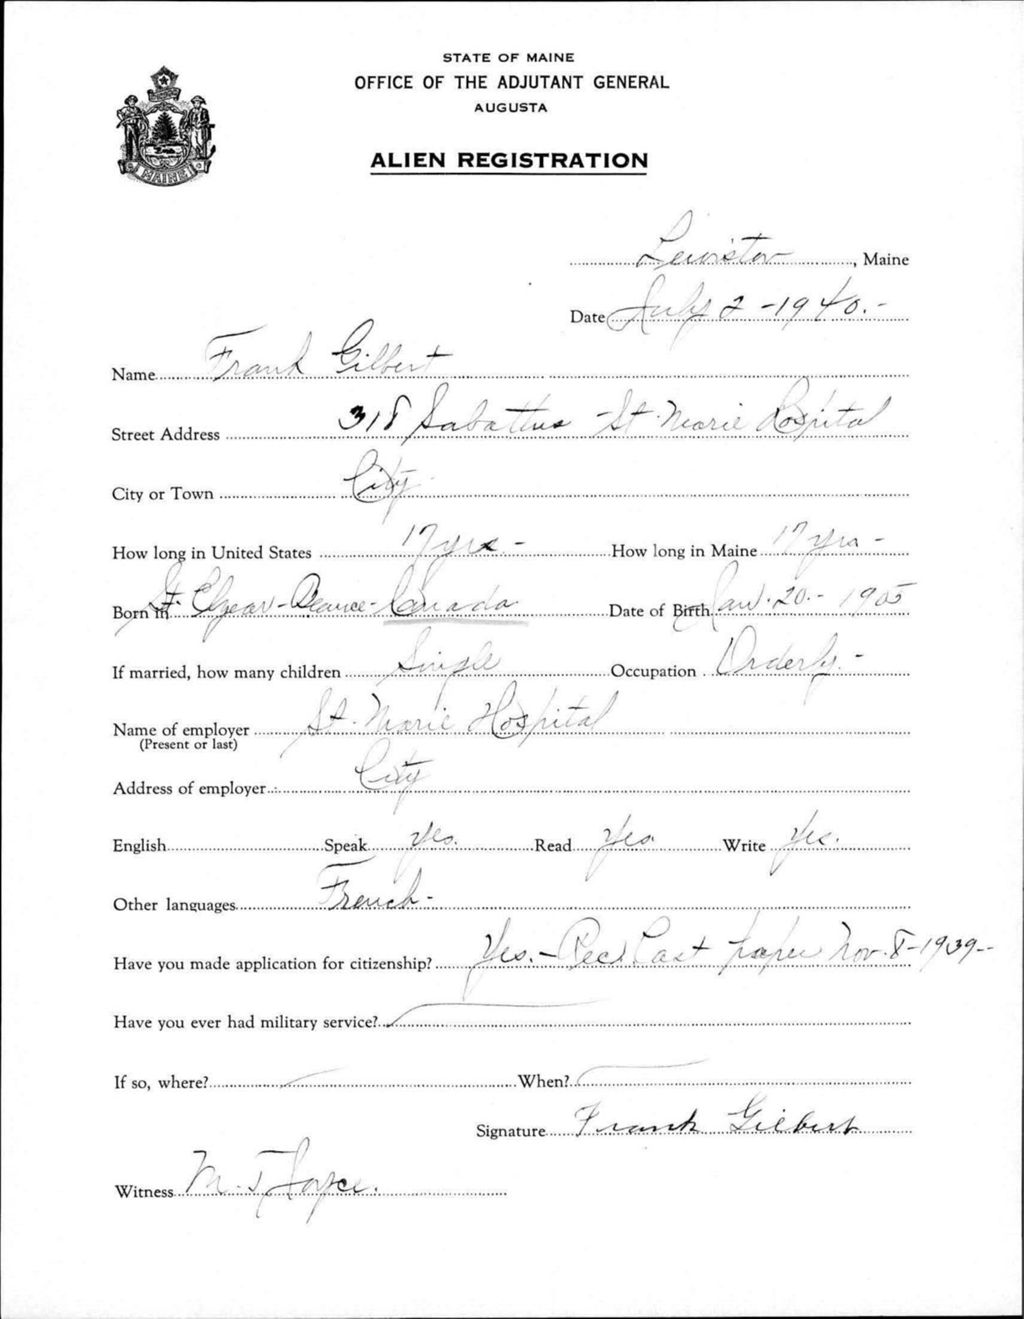 STATE OF MAINE
OFFICE OF THE ADJUTANT GENERAL
AUGUSTA
ALIEN REGISTRATION
MAINE
Lewiston, Maine
Date July 2 - 1940. -
Name Frank Gilbert
Street Address 318 Sabattus - St. Marie Hospital
City or Town City
How long in United States 17 yrs - How long in Maine 17 yrs -
Born in St. Elzear - Beauce - Canada Date of Birth Jan. 20. - 1905
If married, how many children Single Occupation Orderly. -
Name of employer St. Marie Hospital
(Present or last)
Address of employer City
English Speak Yes. Read Yes Write Yes.
Other languages French -
Have you made application for citizenship? Yes. - Rec'd Last paper Nov. 8 - 1939 -
Have you ever had military service?
If so, where? When?
Signature Frank Gilbert
Witness M. J. Joyce.